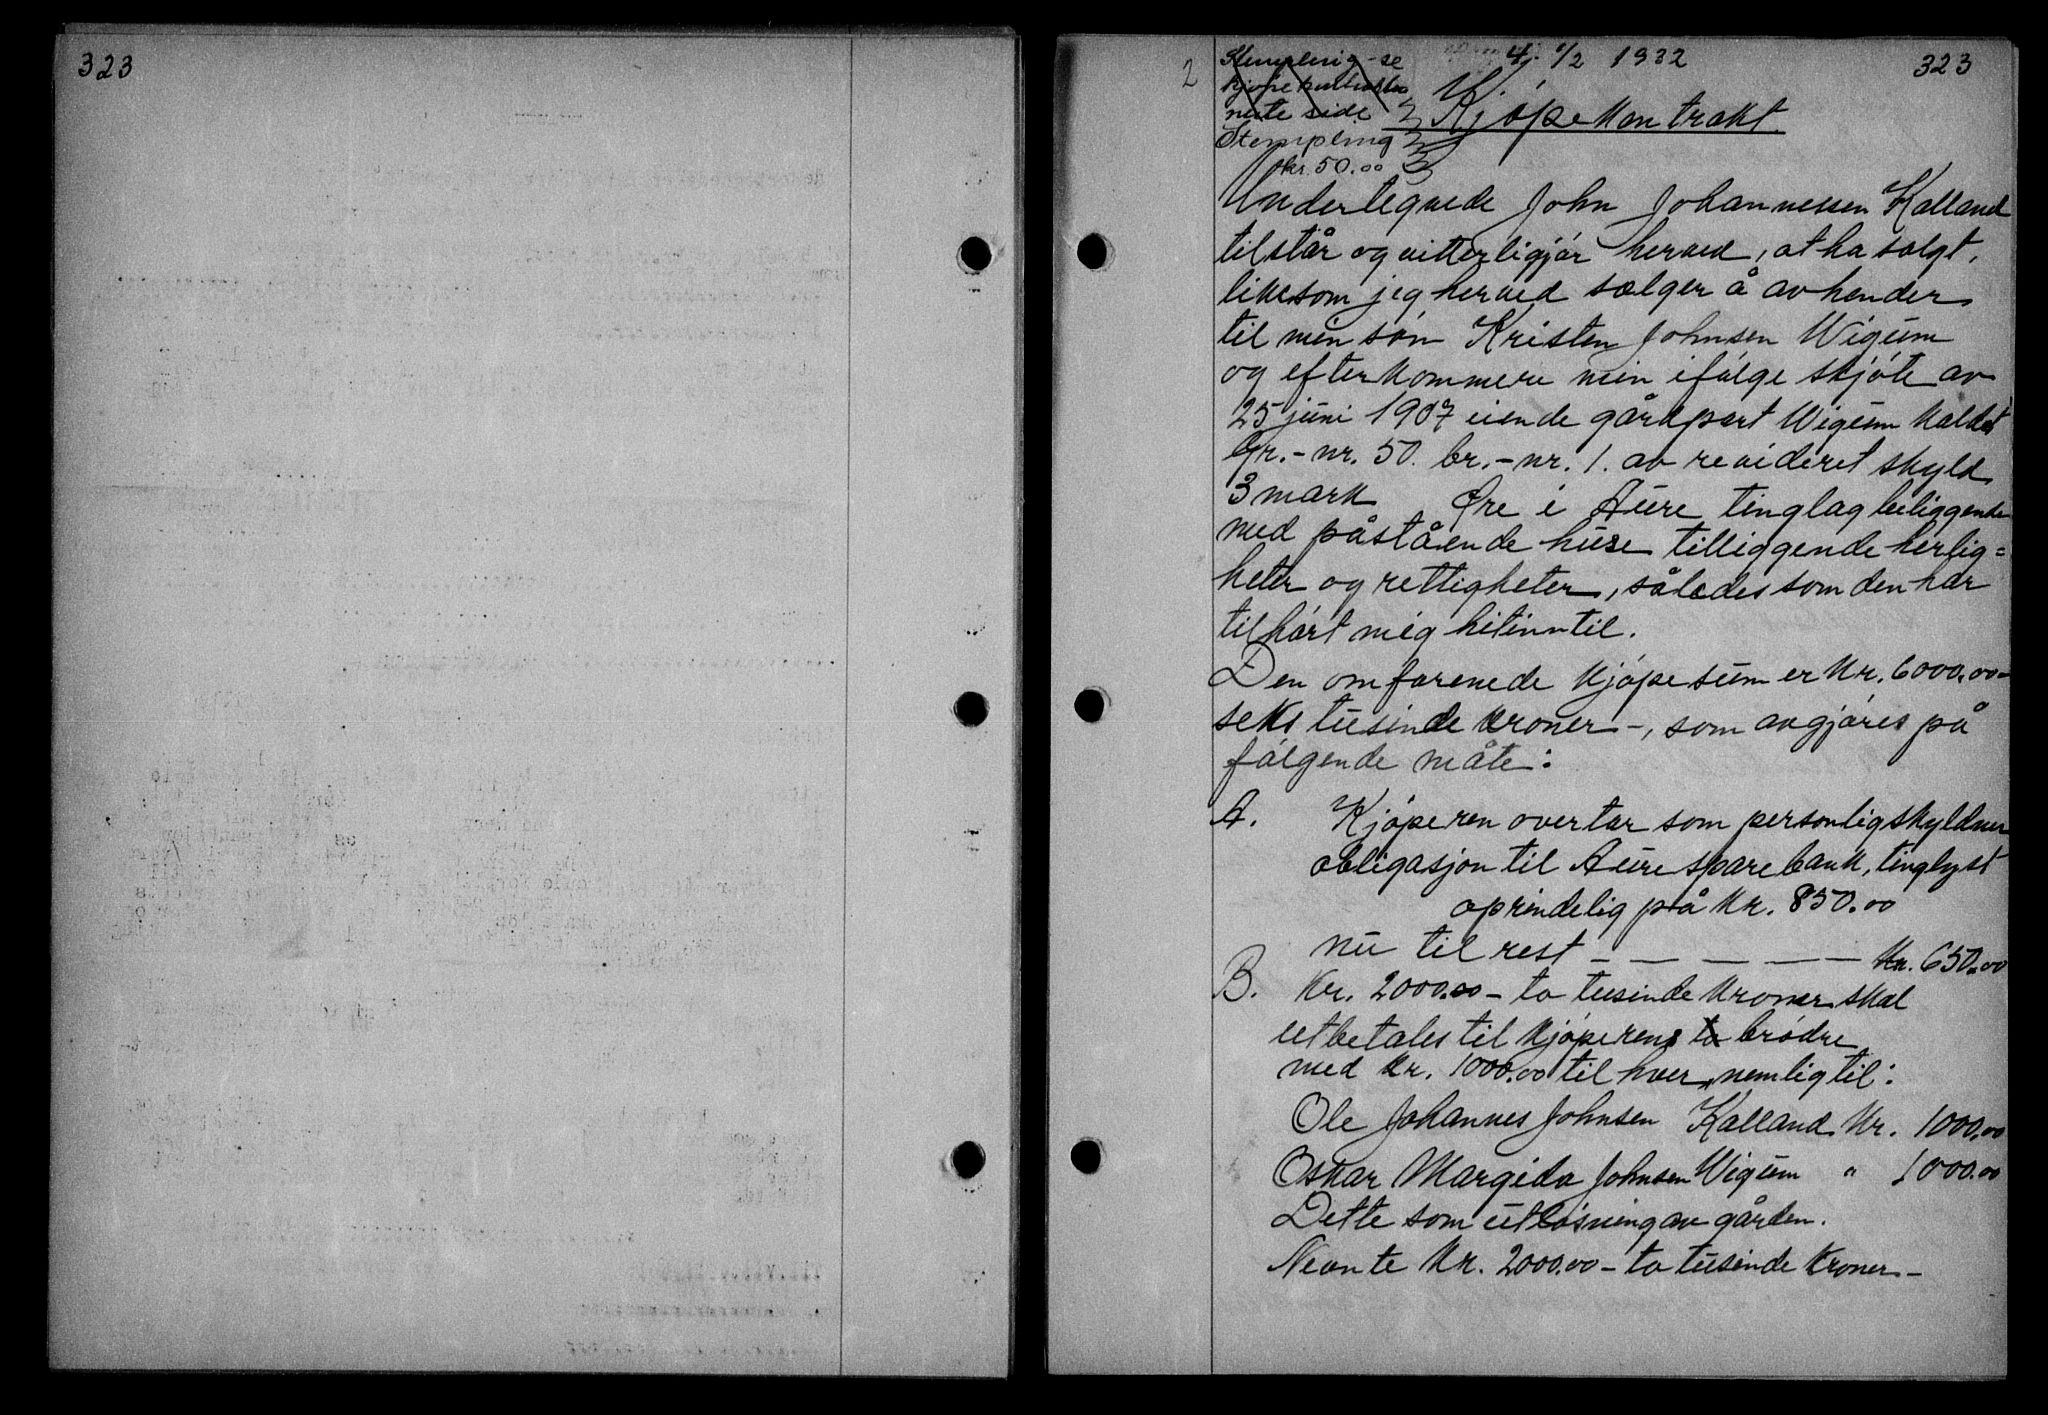 323
2
4. 6/2 1932
323
Stempling - se
kjøpekontrakten
neste side
Stempling
kr. 50.00
Kjøpekontrakt.
Undertegnede John Johannessen Kalland
tilstår og vitterligjør herved, at ha solgt,
likesom jeg herved sælger å avhender
til min søn Kristen Johnsen Wigum
og efterkommere min ifølge skjøte av
25 juni 1907 eiende gårdpart Wigum kaldet
Gr.-nr. 50. br.-nr. 1. av revideret skyld
3 mark Øre i Aure tinglag beliggende
med påstående huse tilliggende herlig=
heter og rettigheter, således som den har
tilhørt mig hitinntil.
Den omforenede kjøpesum er Kr. 6000.00-
seks tusinde kroner -, som avgjøres på
følgende måte:
A. Kjøperen overtar som personlig skyldner
obligasjon til Aure sparebank, tinglyst
oprindelig på Kr. 850.00
nu til rest - - - - - - Kr. 650.00
B. Kr. 2000.00 - to tusinde kroner skal
utbetales til kjøperens to brødre
med kr. 1000.00 til hver, nemlig til:
Ole Johannes Johnsen Kalland Kr. 1000.00
Oskar Margido Johnsen Wigum " 1000.00
Dette som utløsning av gården.
Nevnte Kr. 2000.00 - to tusinde kroner -